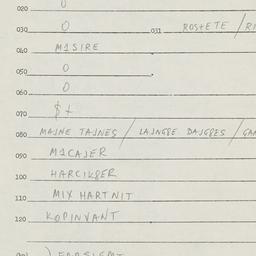 020 0
030 0 031 ROSTETE /
040 MISIRE
050 0
060 0
070 $ t
080 MAJNE TAJNES / LAJNGBE DAJGBES /
090 MICAJER
100 HARCIKBER
110 MIX HARTNIT
120 KOPINVANT